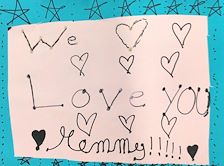 We
Love you
Memmy!!!!!